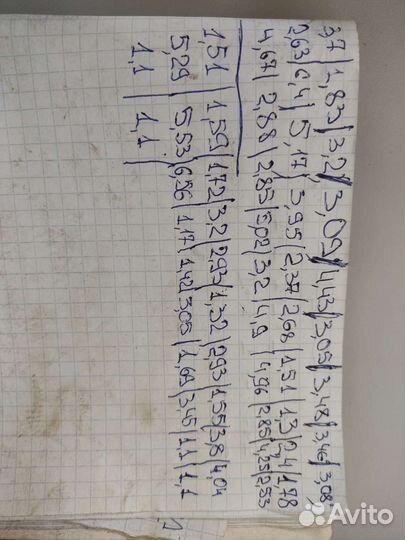 3,7 | 1,83 | 3,2 | 3,09 | 4,43 | 3,05 | 3,48 | 3,46 | 3,08
2,63 | 0,4 | 5,17 | 3,95 | 2,37 | 2,68 | 1,51 | 1,3 | 2,4 | 1,78
4,67 | 2,88 | 2,83 | 5,02 | 3,2 | 4,9 | 4,96 | 2,85 | 4,25 | 2,53
1,51 | 1,59 | 1,72 | 3,2 | 2,93 | 1,32 | 2,93 | 1,55 | 3,8 | 4,04
5,29 | 5,53 | 6,56 | 1,17 | 1,42 | 3,05 | 1,69 | 3,45 | 1,1 | 1,1
1,1 | 1,1 |
Avito